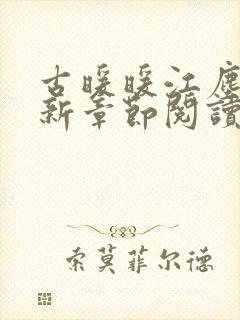 古暖暖江塵
新章節閱讀
索莫菲尔德